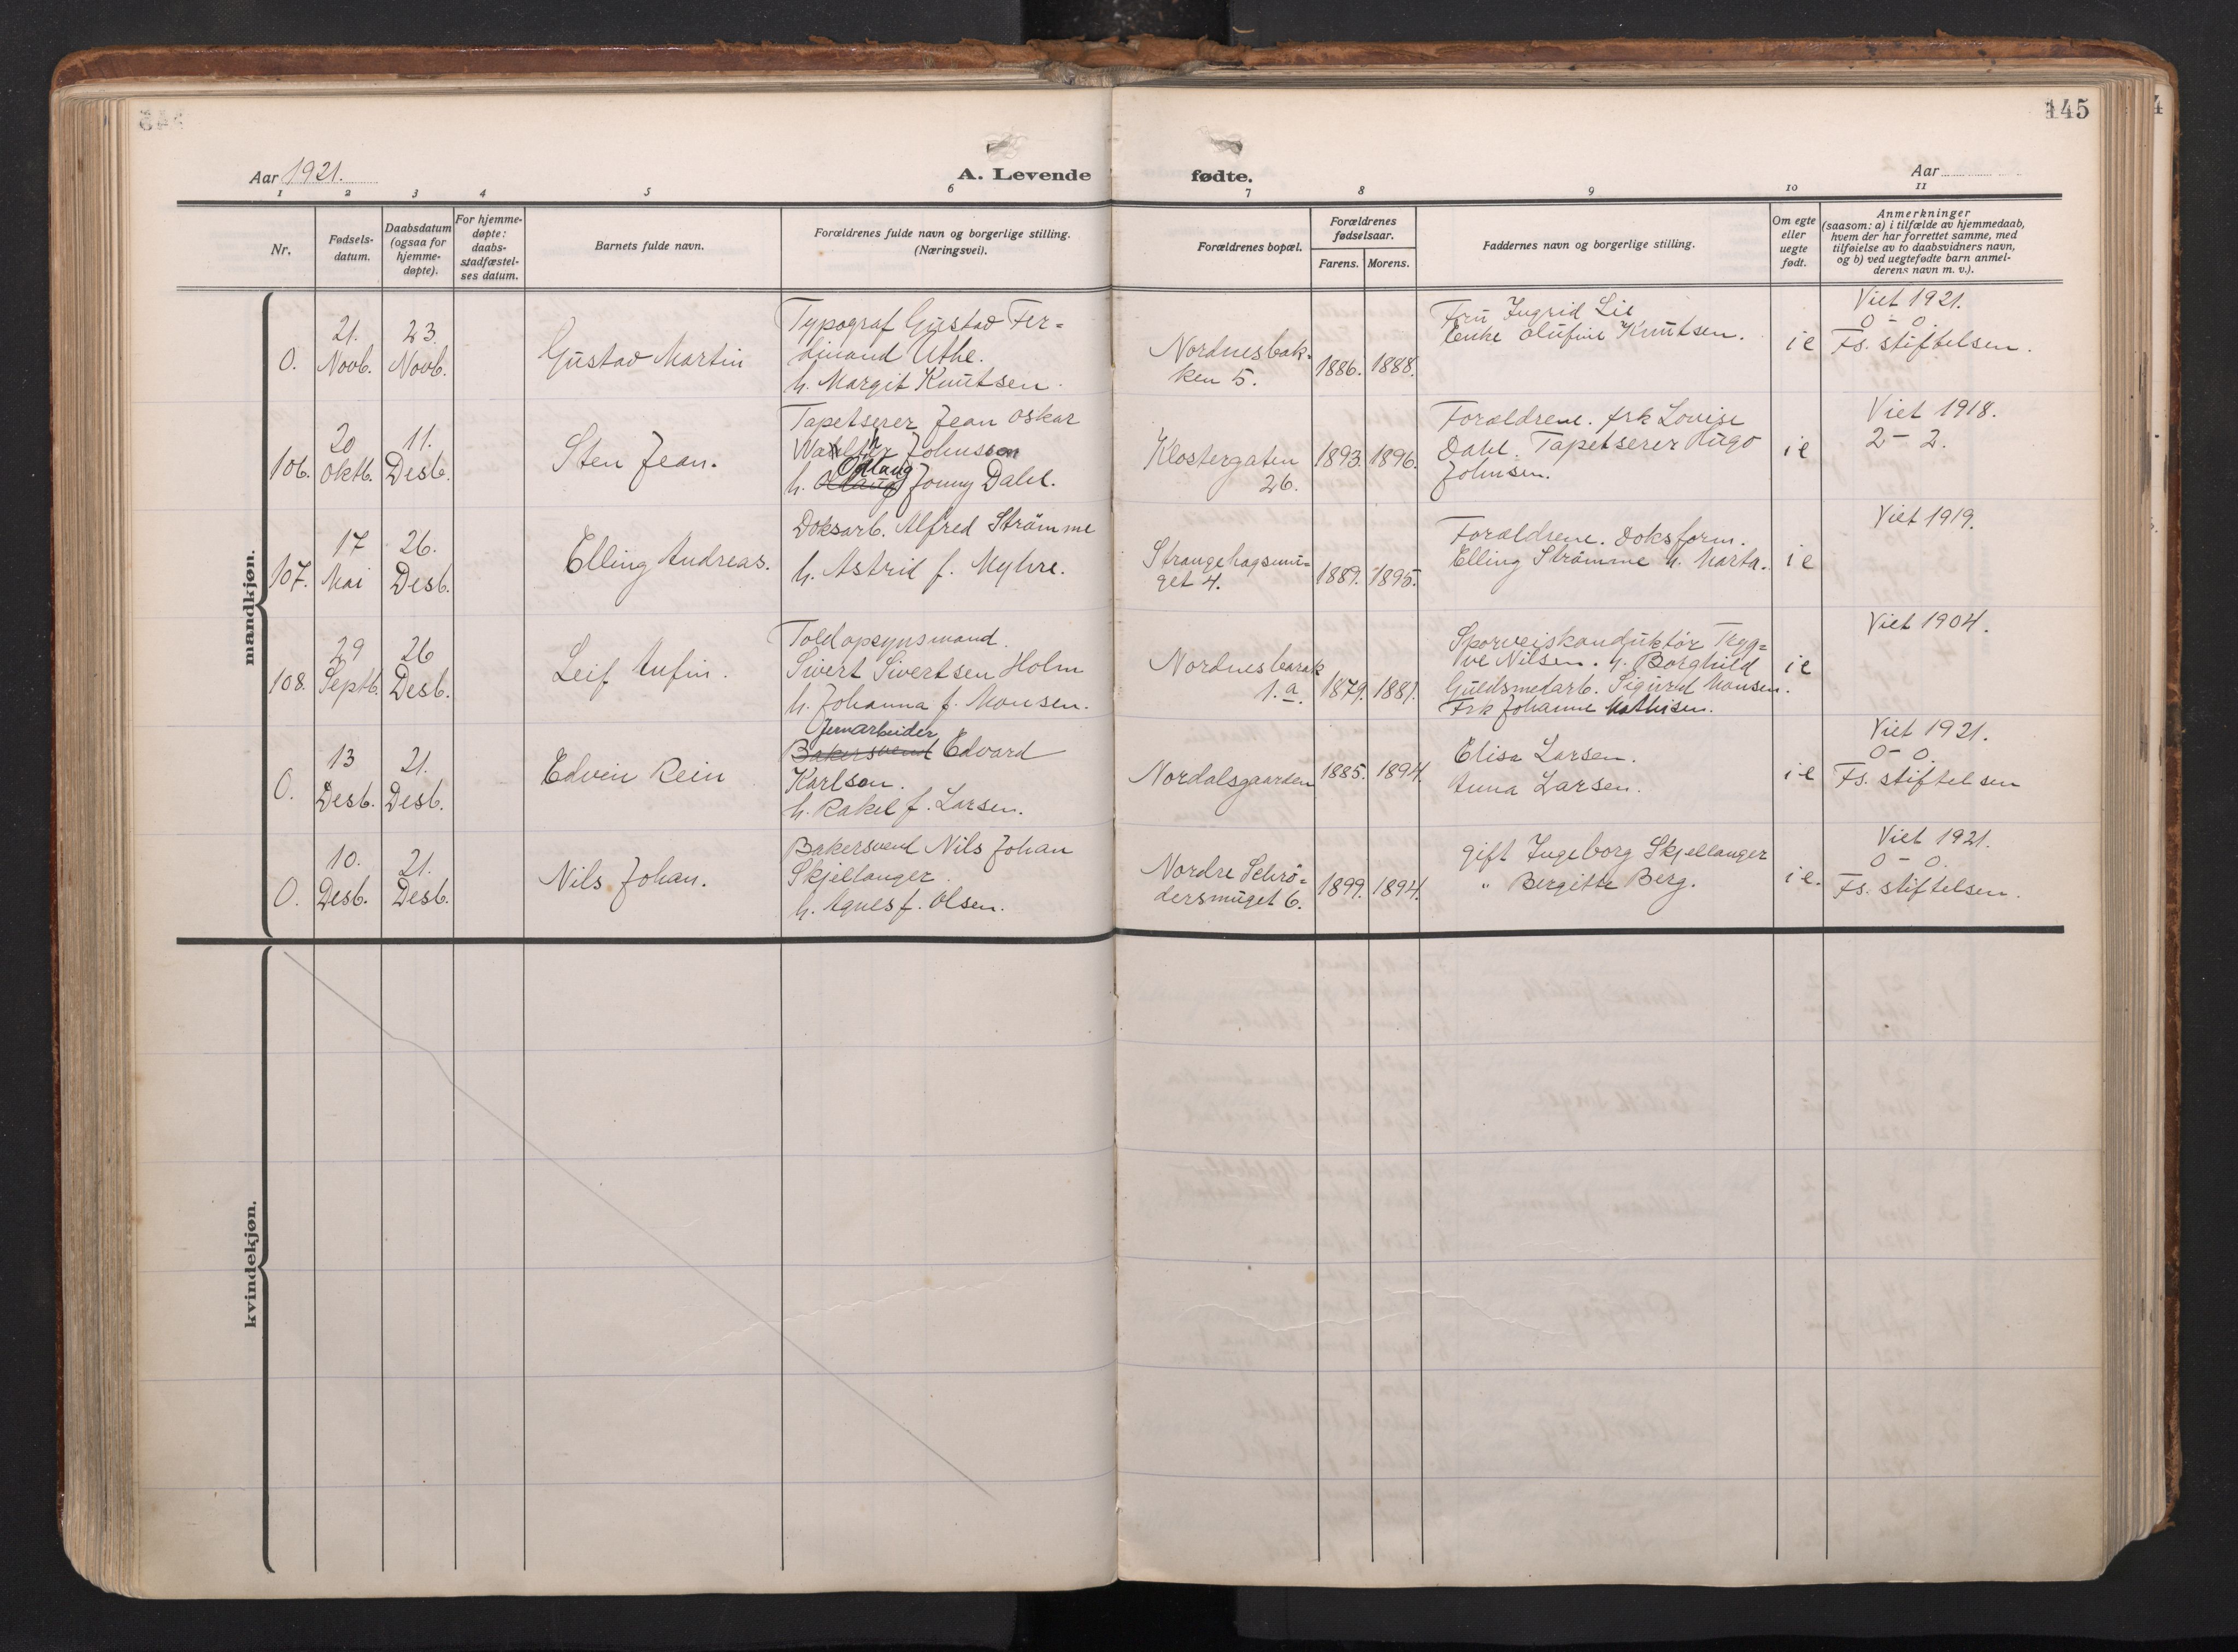 145
Aar 1921.
A. Levende fødte.
Aar
1 2 3 4 5 6 7 8 9 10 11
Nr.
Fødsels-
datum.
Daabsdatum
(ogsaa for
hjemme-
døpte).
For hjemme-
døpte:
daabs-
stadfæstel-
ses datum.
Barnets fulde navn.
Forældrenes fulde navn og borgerlige stilling.
(Næringsvei).
Forældrenes bopæl.
Forældrenes
fødselsaar.
Farens. Morens.
Faddernes navn og borgerlige stilling.
Om egte
eller
uegte
født.
Anmerkninger
(saasom: a) i tilfælde av hjemmedaab,
hvem der har forrettet samme, med
tilføielse av to daabsvidners navn,
og b) ved uegtefødte barn anmel-
derens navn m. v.).
mandkjøn.
0.
21.
Novb.
23.
Novb.
Gustav Martin
Typograf Gustav Fer-
dinand Uthe.
h. Margit Knutsen.
Nordnesbak-
ken 5.
1886. 1888.
Fru Ingrid Lie
Enke Olufine Knutsen.
i e
Viet 1921.
0 - 0.
Fs. stiftelsen.
106.
20
Oktb.
11.
Desb.
Sten Jean.
Tapetserer Jean Oskar
Johnsson
h. Olaug Odlaug Jonny Dahl.
Klostergaten
26.
1893. 1896.
Forældrene. frk Lovise
Dahl. Tapetserer Hugo
Johnsen.
i e
Viet 1918.
2 - 2.
107.
17
Mai
26.
Desb.
Elling Andreas.
Doksarb. Alfred Strömme
h. Astrid f. Myhre.
Strangehagsmu-
get 4.
1889. 1895.
Forældrene. Doksform.
Elling Strömme h. Marta.
i e
Viet 1919.
108.
29
Septb.
26
Desb.
Leif Arfin.
Toldopsynsmand.
Sivert Sivertsen Holm
h. Johanna f. Monsen.
Nordnesbarak
1.a.
1879. 1881.
Sporveiskonduktør Tryg-
ve Nilsen. h. Borghild
Guldsmedarb. Sigurd Monsen.
Frk Johanne Mathisen.
i e
Viet 1904.
0.
13
Desb.
21.
Desb.
Edvin Rein
Jernarbeider
Bakersvend Edvard
Karlson.
h. Rakel f. Larsen.
Nordalsgaarden
1885. 1894.
Elisa Larsen.
Anna Larsen.
i e
Viet 1921.
0 - 0.
Fs. stiftelsen
0.
10.
Desb.
21.
Desb.
Nils Johan.
Bakersvend Nils Johan
Skjellanger.
h. Agnes f. Olsen.
Nordre Schrö-
dersmuget 6.
1899. 1894.
gift Ingeborg Skjellanger
" Bergitte Berg.
i e.
Viet 1921.
0 - 0.
Fs. stiftelsen.
kvindekjøn.